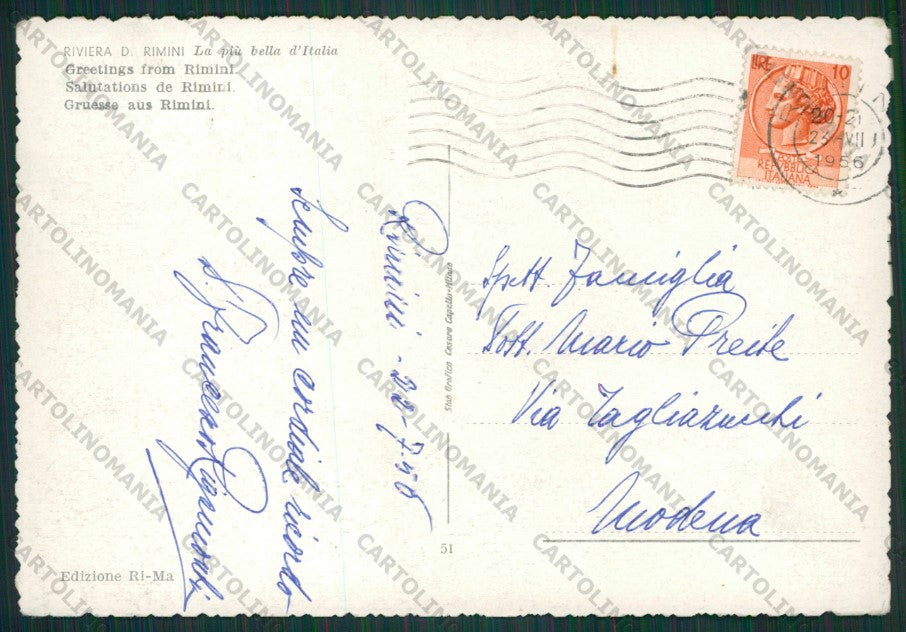 RIVIERA D. RIMINI La più bella d'Italia
Greetings from Rimini.
Salutations de Rimini.
Gruesse aus Rimini.
LIRE 10
POSTE
REPVBBLICA
ITALIANA
20-21
1956
Rimini - 22-7-56
Sempre un cordiale ricordo
Spett. Famiglia
Dott. Mario Preite
Via Tagliazucchi
Modena
Stab Grafico Cesare Capello-Milano
51
Edizione Ri-Ma
CARTOLINOMANIA